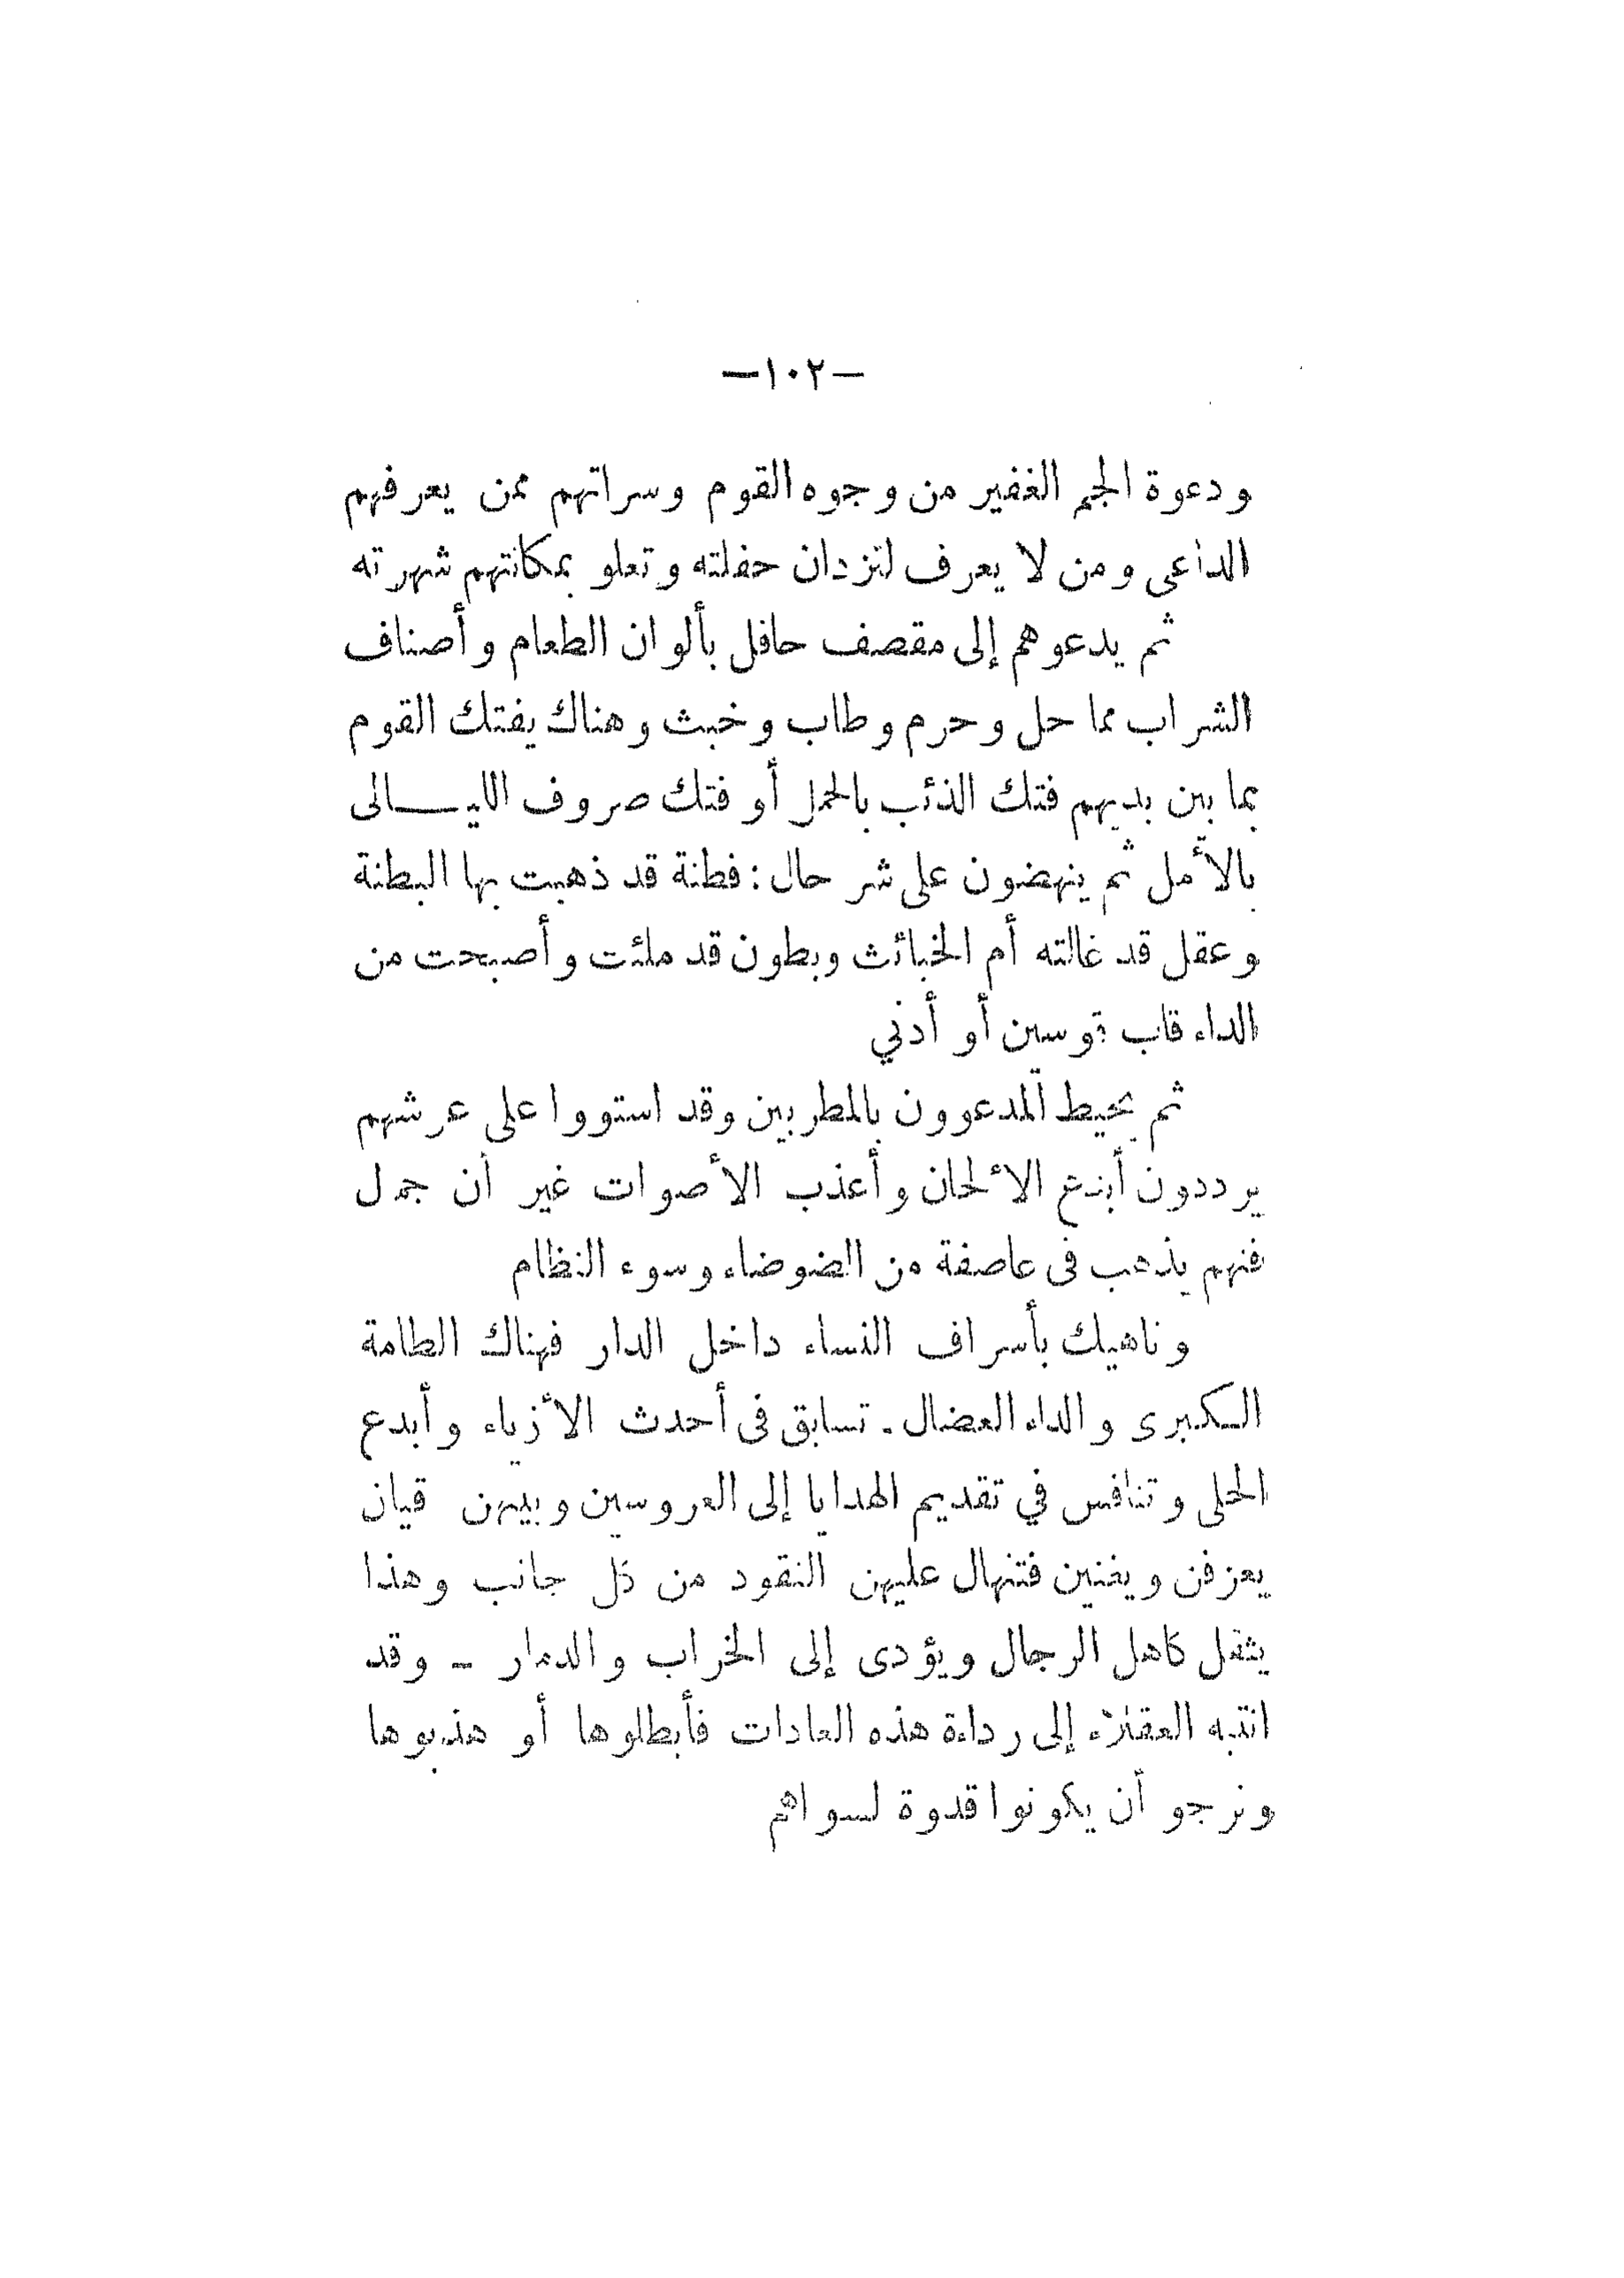 —١٠٢—
ودعوة الجم الغفير من وجوه القوم وسراتهم ممن يعرفهم
الداعى ومن لا يعرف لتزدان حفلته وتعلو بمكانتهم شهرته
ثم يدعوهم إلى مقصف حافل بألوان الطعام وأصناف
الشراب مما حل وحرم وطاب وخبث وهناك يفتك القوم
بما بين يديهم فتك الذئب بالحمل أو فتك صروف الليـــالى
بالأمل ثم ينهضون على شر حال : فطنة قد ذهبت بها البطنة
وعقل قد غالته أم الخبائث وبطون قد ملئت وأصبحت من
الداء قاب قوسين أو أدني
ثم يحيط المدعوون بالمطربين وقد استووا على عرشهم
يرددون أبدع الألحان وأعذب الأصوات غير أن جمال
فنهم يذهب فى عاصفة من الضوضاء وسوء النظام
وناهيك بأسراف النساء داخل الدار فهناك الطامة
الـكبرى والداء العضال . تسابق فى أحدث الأزياء وأبدع
الحلى وتنافس في تقديم الهدايا إلى العروسين وبينهن قيان
يعزفن ويغنين فتنهال عليهن النقود من كل جانب وهذا
يثقل كاهل الرجال ويؤدى إلى الخراب والدمار – وقد
انتبه العقلاء إلى رداءة هذه العادات فأبطلوها أو هذبوها
ونرجو أن يكونوا قدوة لسواهم